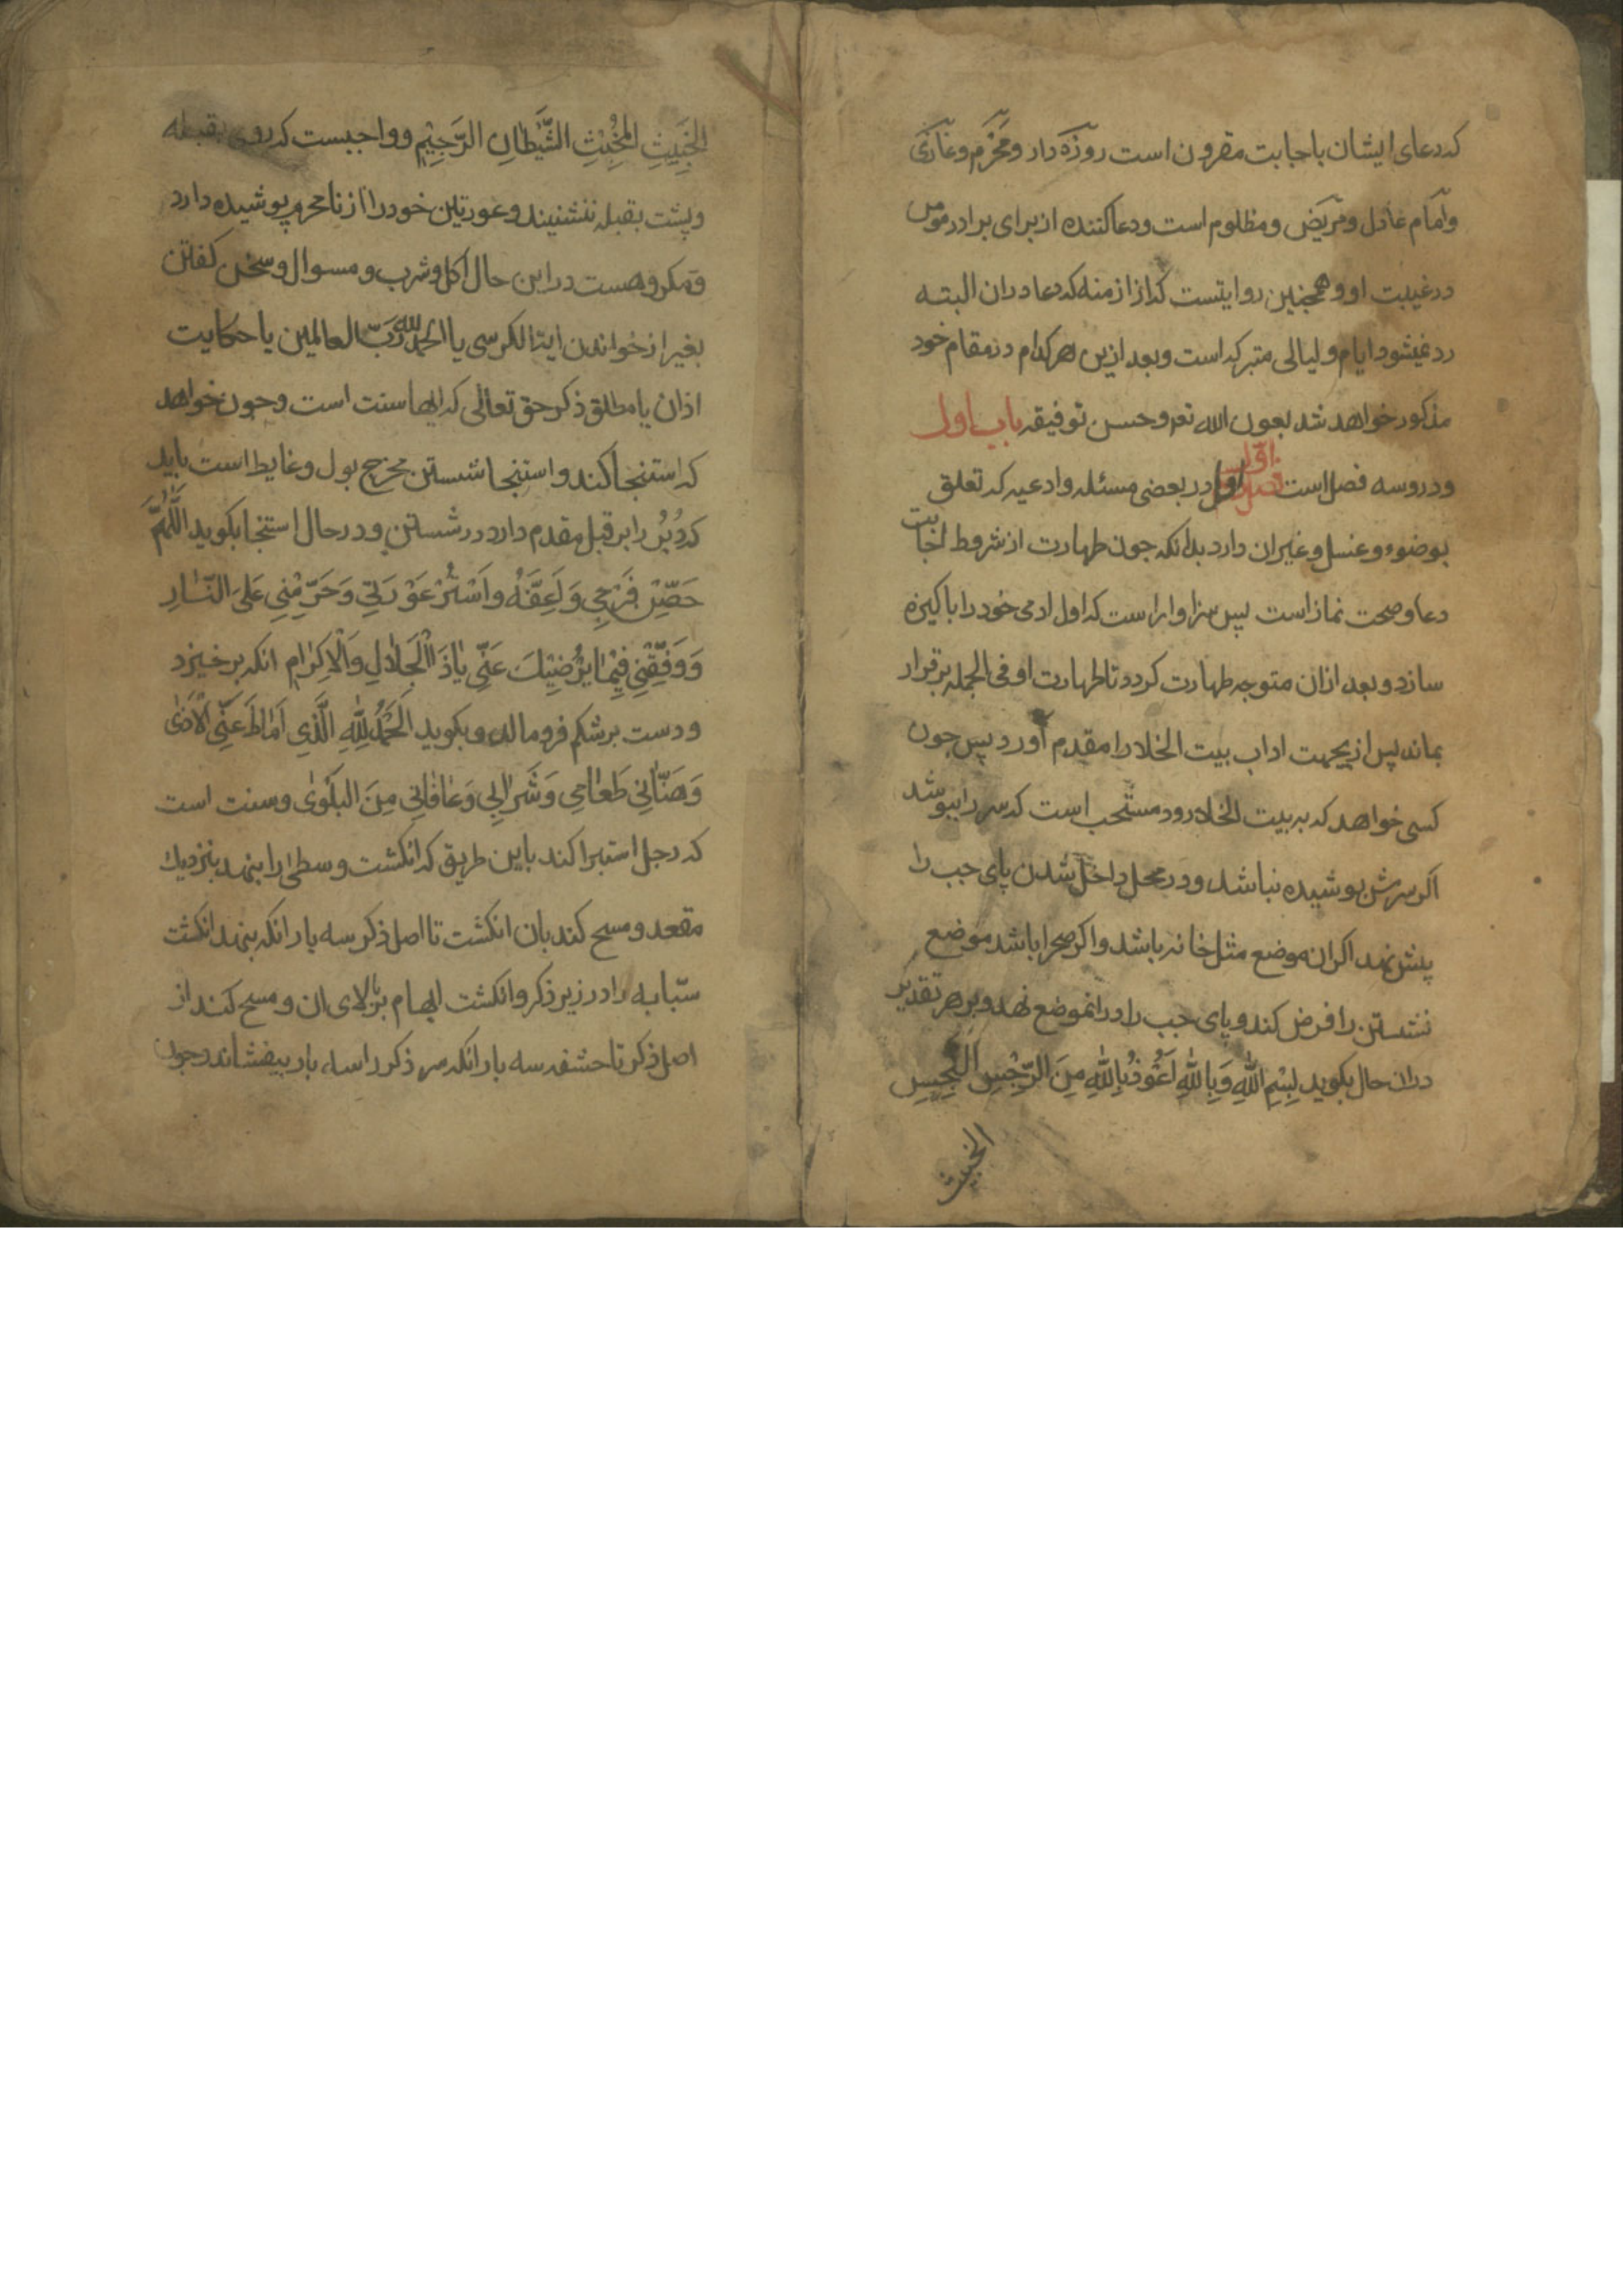 که دعای ایشان باجابت مقرون است روزه دار و محرم و غازی
وامام عادل و مریض و مظلوم است و دعا کننده از برای برادر مومن
در غیبت او و همچنین روایتست که از ازمنه که دعا دران البته
رد نمیشود ایام و لیالی متبرکه است و بعد ازین هر کدام در مقام خود
مذکور خواهد شد بعون الله تعو حسن توفیقه باب اول
ودروسه فصل است فصل اول در بعضی مسئله وادعیه که تعلق
بوضوء و غسل و غیران دارد بدانکه جون طهارت از شروط اجابت
دعا و صحت نماز است پس سزاوار است که اول ادمی خود را باکیزه
سازد و بعد ازان متوجه طهارت کردد تا طهارت او فی الجمله برقرار
بماند پس ازیجهت اداب بیت الخلا را مقدم آورد پس جون
کسی خواهد که به بیت الخلا رود مستحب است که سر را ببوشد
اکر سرش بوشیده نباشد و در محل داخل شدن پای جب را
پیش نهد اکران موضع مثل خانه باشد واکر صحرا باشد موضع
نشستن را فرض کند و پای جب را درانموضع نهد و بر هر تقدیر
دران حال بکوید بِسْمِ اللّٰهِ وَبِاللّٰهِ اَعُوْذُ بِاللّٰهِ مِنَ الرِّجْسِ النَّجِسِ
الخبیث
الخَبِيثِ المُخْبِثِ الشَّيْطَانِ الرَّجِيْمِ و واجبست که روی بقبله
و پشت بقبله ننشنیند و عورتین خود را از نامحرم پوشیده دارد
و مکروهست در این حال اکل و شرب و مسوال و سخن کفتن
بغیر از خواندن ایة الکرسی یا الحمد لله رَبّ العالمین یا حکایت
اذان یا مطلق ذکر حق تعالی که ایها سنت است و جون خواهد
که استنجا کند و استنجا شستن مخرج بول و غایط است باید
که دُبُر را بر قبل مقدم دارد در شستن و در حال استنجا بکوید اَللّٰهُمَّ
حَصِّنْ فَرْجِي وَاَعِفَّهُ وَاسْتُرْ عَوْرَتِي وَحَرِّمْنِي عَلَى النَّارِ
وَوَفِّقْنِي فِيْمَا يُرْضِيْكَ عَنِّي يٰا ذَا الْجَلاٰلِ وَالْاِكْرٰامِ انکه برخیزد
و دست بر شکم فرو مالد و بکوید اَلْحَمْدُ لِلّٰهِ الَّذِي اَمٰاطَ عَنِّي الْاَذٰى
وَهَنَّانِي طَعٰامِي وَشَرٰابِي وَعٰافٰانِي مِنَ البَلْوٰى و سنت است
که رجل استبرا کند باین طریق که انکشت وسطی را بنهد بنزدیك
مقعد و مسح کند بان انکشت تا اصل ذکر سه بار انکه بنهد انکشت
سبّابه را در زیر ذکر و انکشت ابهام بر بالای ان و مسح کند از
اصل ذکر تا حشفه سه بار انکه سر ذکر را سه بار بیفشاند و جون